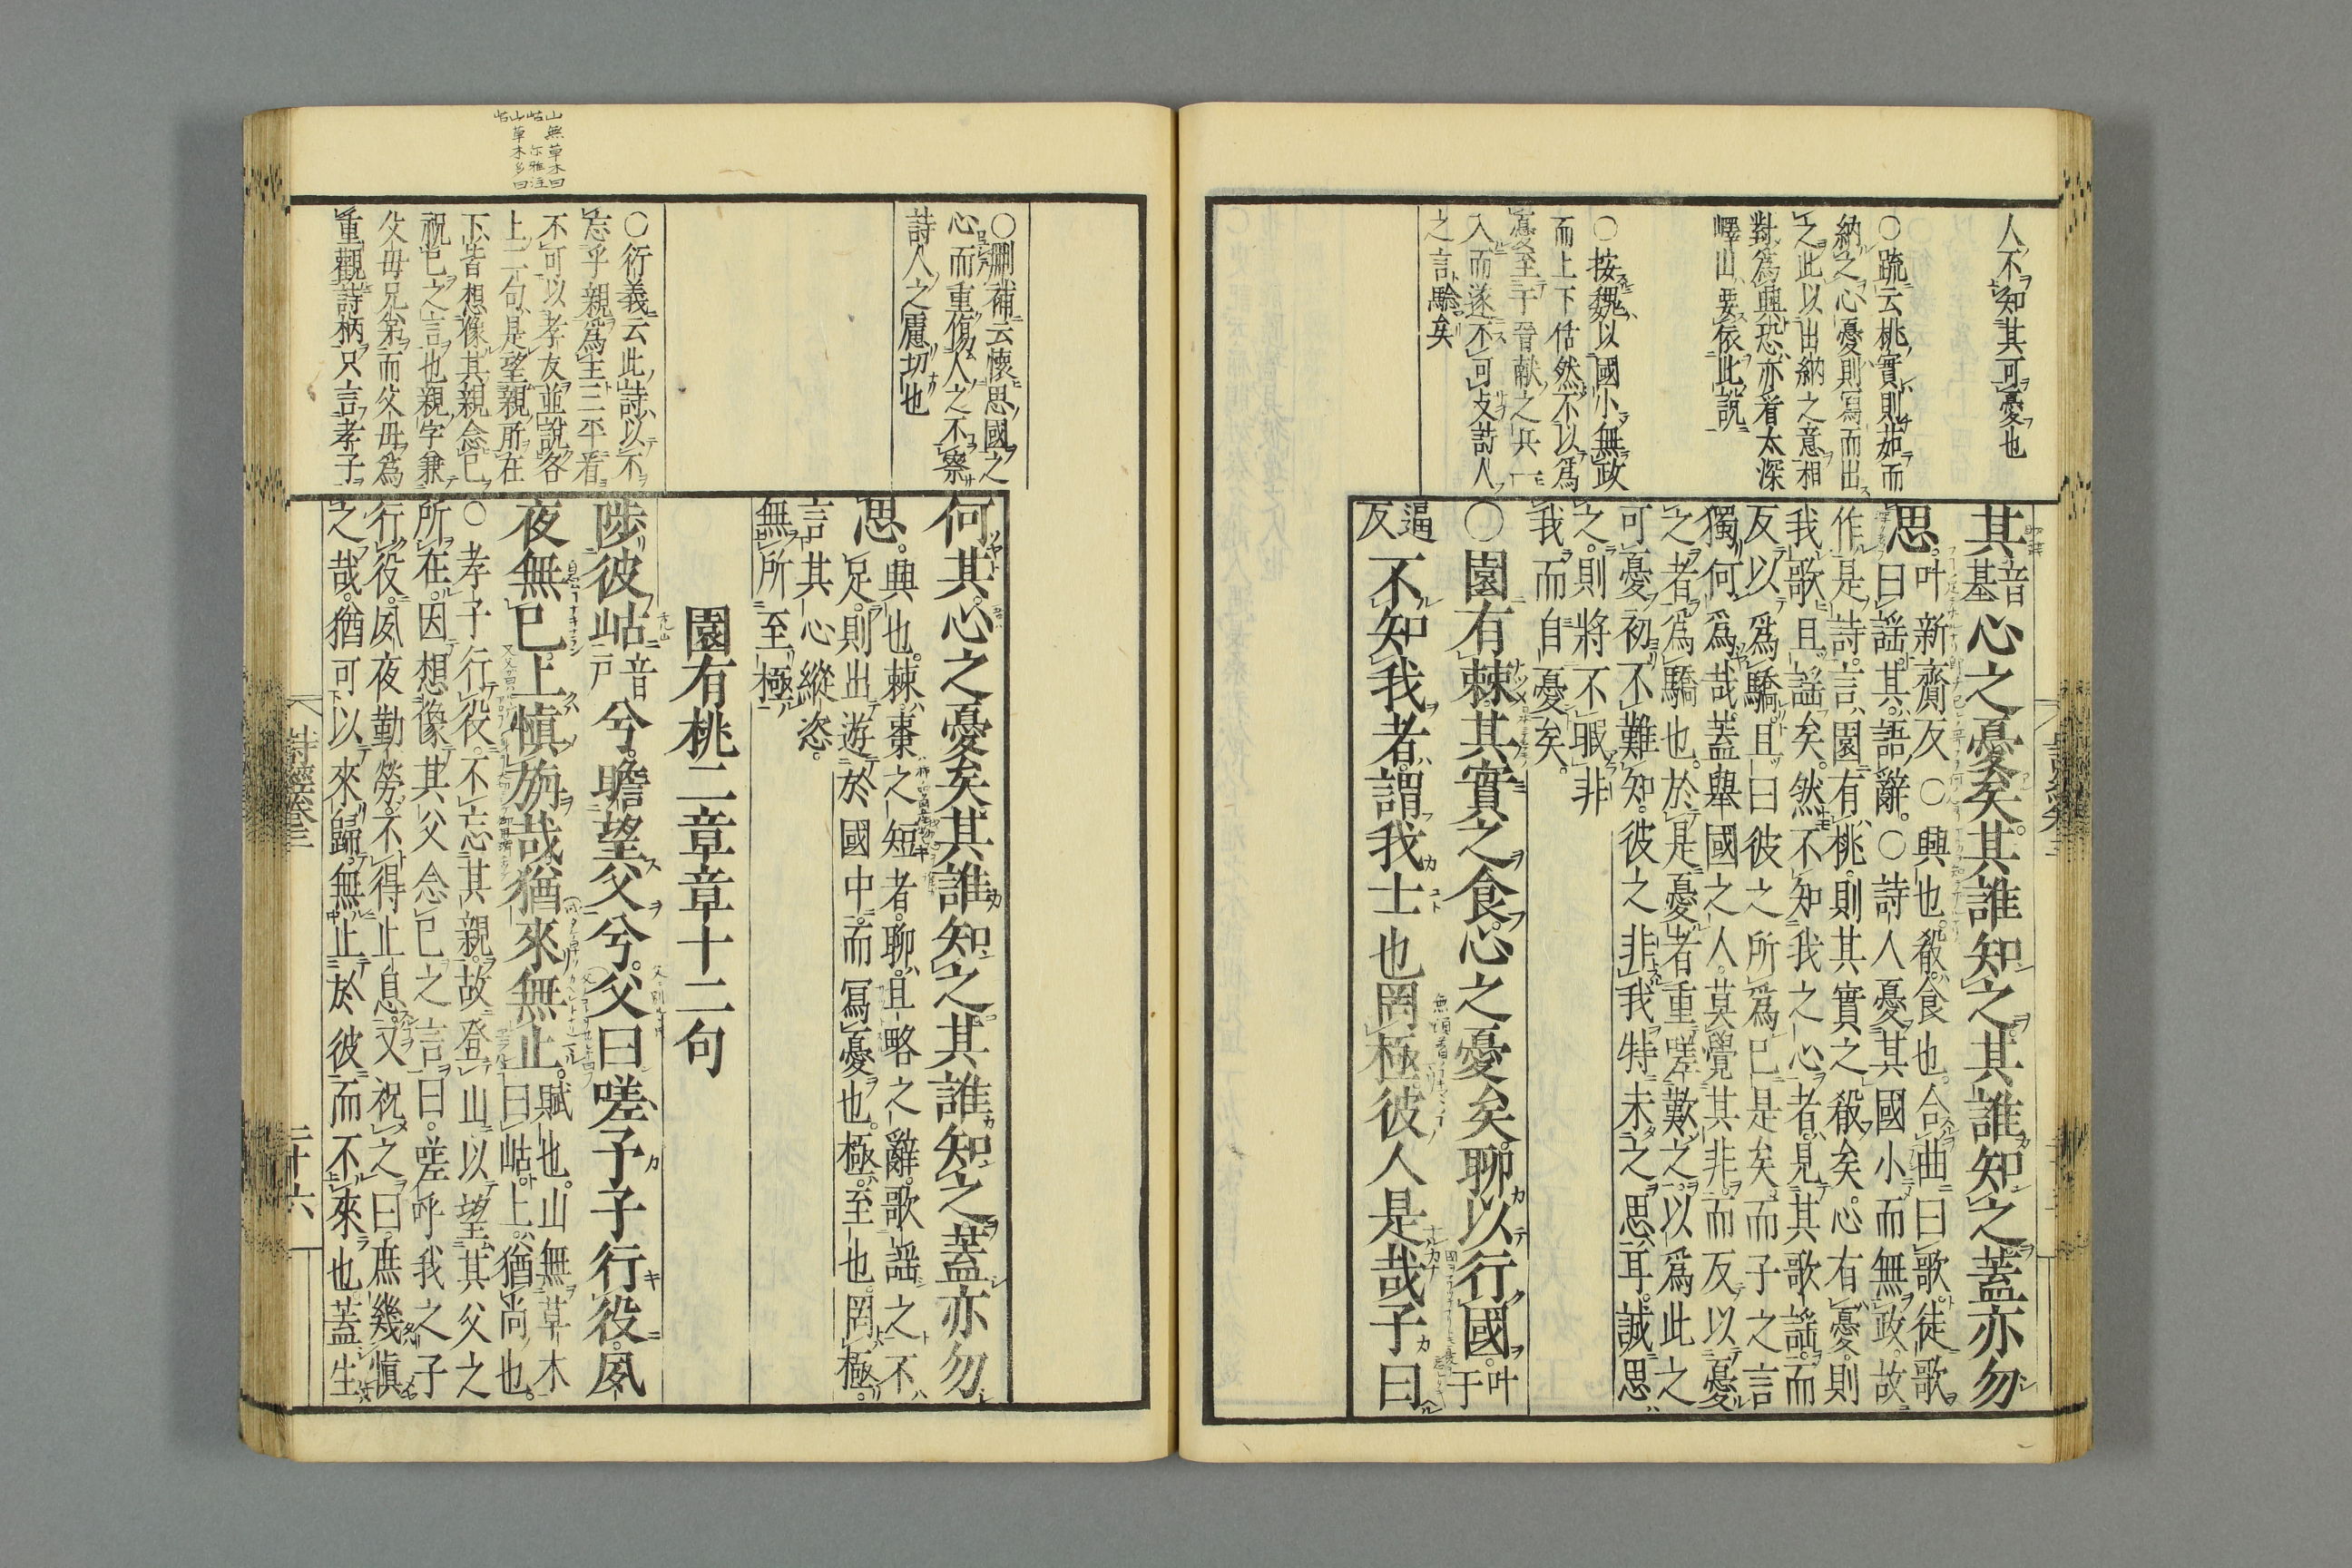 人不知其可憂也
○䟽云桃實則茹而
納之心憂則寫而出
之此以出納之意相
對爲興恐亦看太深
嶧山要依此說
○按魏以國小無政
而上下恬然不以爲
憂至于晉献之兵一
入而遂不可攴詩人
之言驗矣
其音基心之憂矣其誰知之其誰知之蓋亦勿
思叶新齎反○興也殽食也合曲曰歌徒歌
曰謡其語辭○詩人憂其國小而無政故
作是詩言園有桃則其實之殽矣心有憂則
我歌且謡矣然不知我之心者見其歌謡而
反以爲驕且曰彼之所爲已是矣而子之言
獨何爲哉蓋舉國之人莫覺其非而反以憂
之者爲驕也於是憂者重嗟歎之以爲此之
可憂初不難知彼之非我特未之思耳誠思
之則將不暇非
我而自憂矣
○園有棘其實之食心之憂矣聊以行國叶于
逼反不知我者謂我士也罔極彼人是哉子曰
○刪補云懷思國之
心而重傷人之不察
詩人之厲切也
○衍義云此詩以不
忘乎親爲主三平看
不可以孝友並說各
上二句是望親所在
下皆想像其親念已
祝已之言也親字兼
父母兄弟而父母爲
重觀詩柄只言孝子
何其心之憂矣其誰知之其誰知之蓋亦勿
思興也棘棗之短者聊且略之辭歌謡之不
足則出遊於國中而寫憂也極至也罔極
言其心縱恣
無所至極
園有桃二章章十二句
陟彼岵音戸兮瞻望父兮父曰嗟予子行役夙
夜無已上愼旃哉猶來無止賦也山無草木
曰岵上猶尚也
○孝子行役不忘其親故登山以望其父之
所在因想像其父念已之言曰嗟呼我之子
行役夙夜勤勞不得止息又祝之曰庶幾愼
之哉猶可以來歸無止於彼而不來也蓋生
山無草木曰
岵 尓雅注
山草木多曰
岵
詩經卷三
二十六